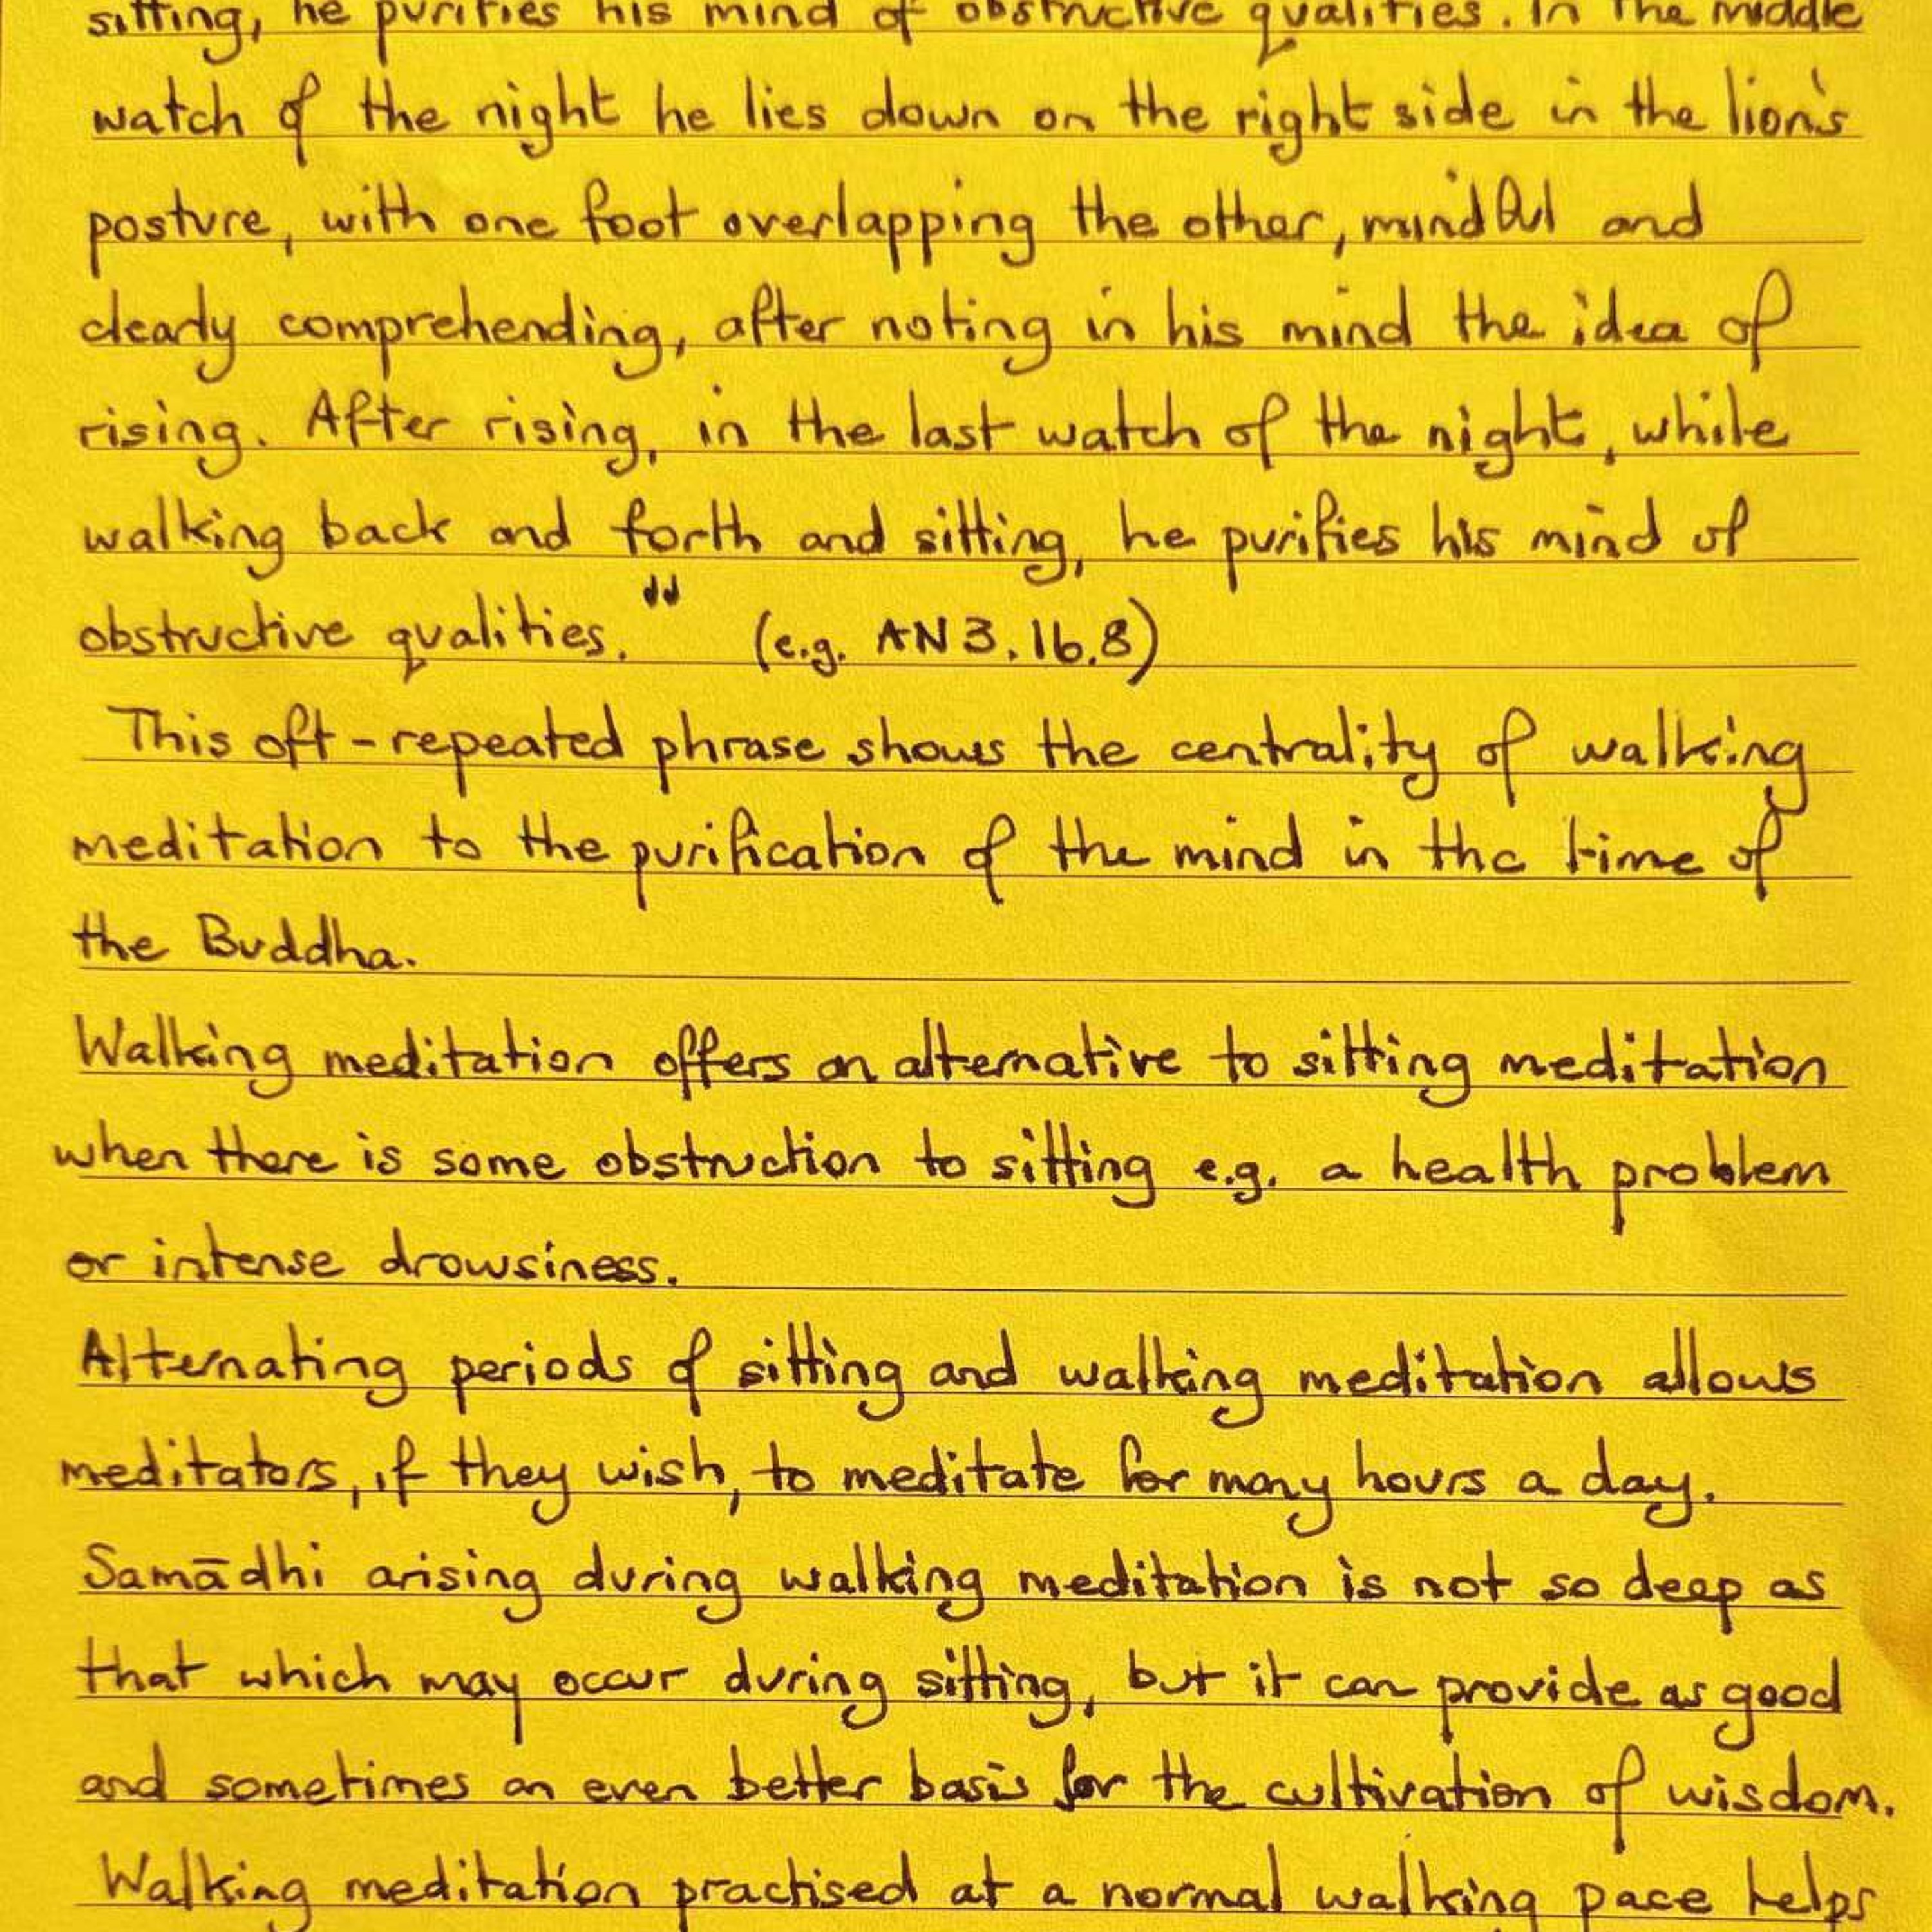 sitting, he purifies his mind of obstructive qualities. In the middle
watch of the night he lies down on the right side in the lion's
posture, with one foot overlapping the other, mindful and
clearly comprehending, after noting in his mind the idea of
rising. After rising, in the last watch of the night, while
walking back and forth and sitting, he purifies his mind of
obstructive qualities." (e.g. AN 3.16.8)
This oft-repeated phrase shows the centrality of walking
meditation to the purification of the mind in the time of
the Buddha.
Walking meditation offers an alternative to sitting meditation
when there is some obstruction to sitting e.g. a health problem
or intense drowsiness.
Alternating periods of sitting and walking meditation allows
meditators, if they wish, to meditate for many hours a day.
Samādhi arising during walking meditation is not so deep as
that which may occur during sitting, but it can provide as good
and sometimes an even better basis for the cultivation of wisdom.
Walking meditation practised at a normal walking pace helps